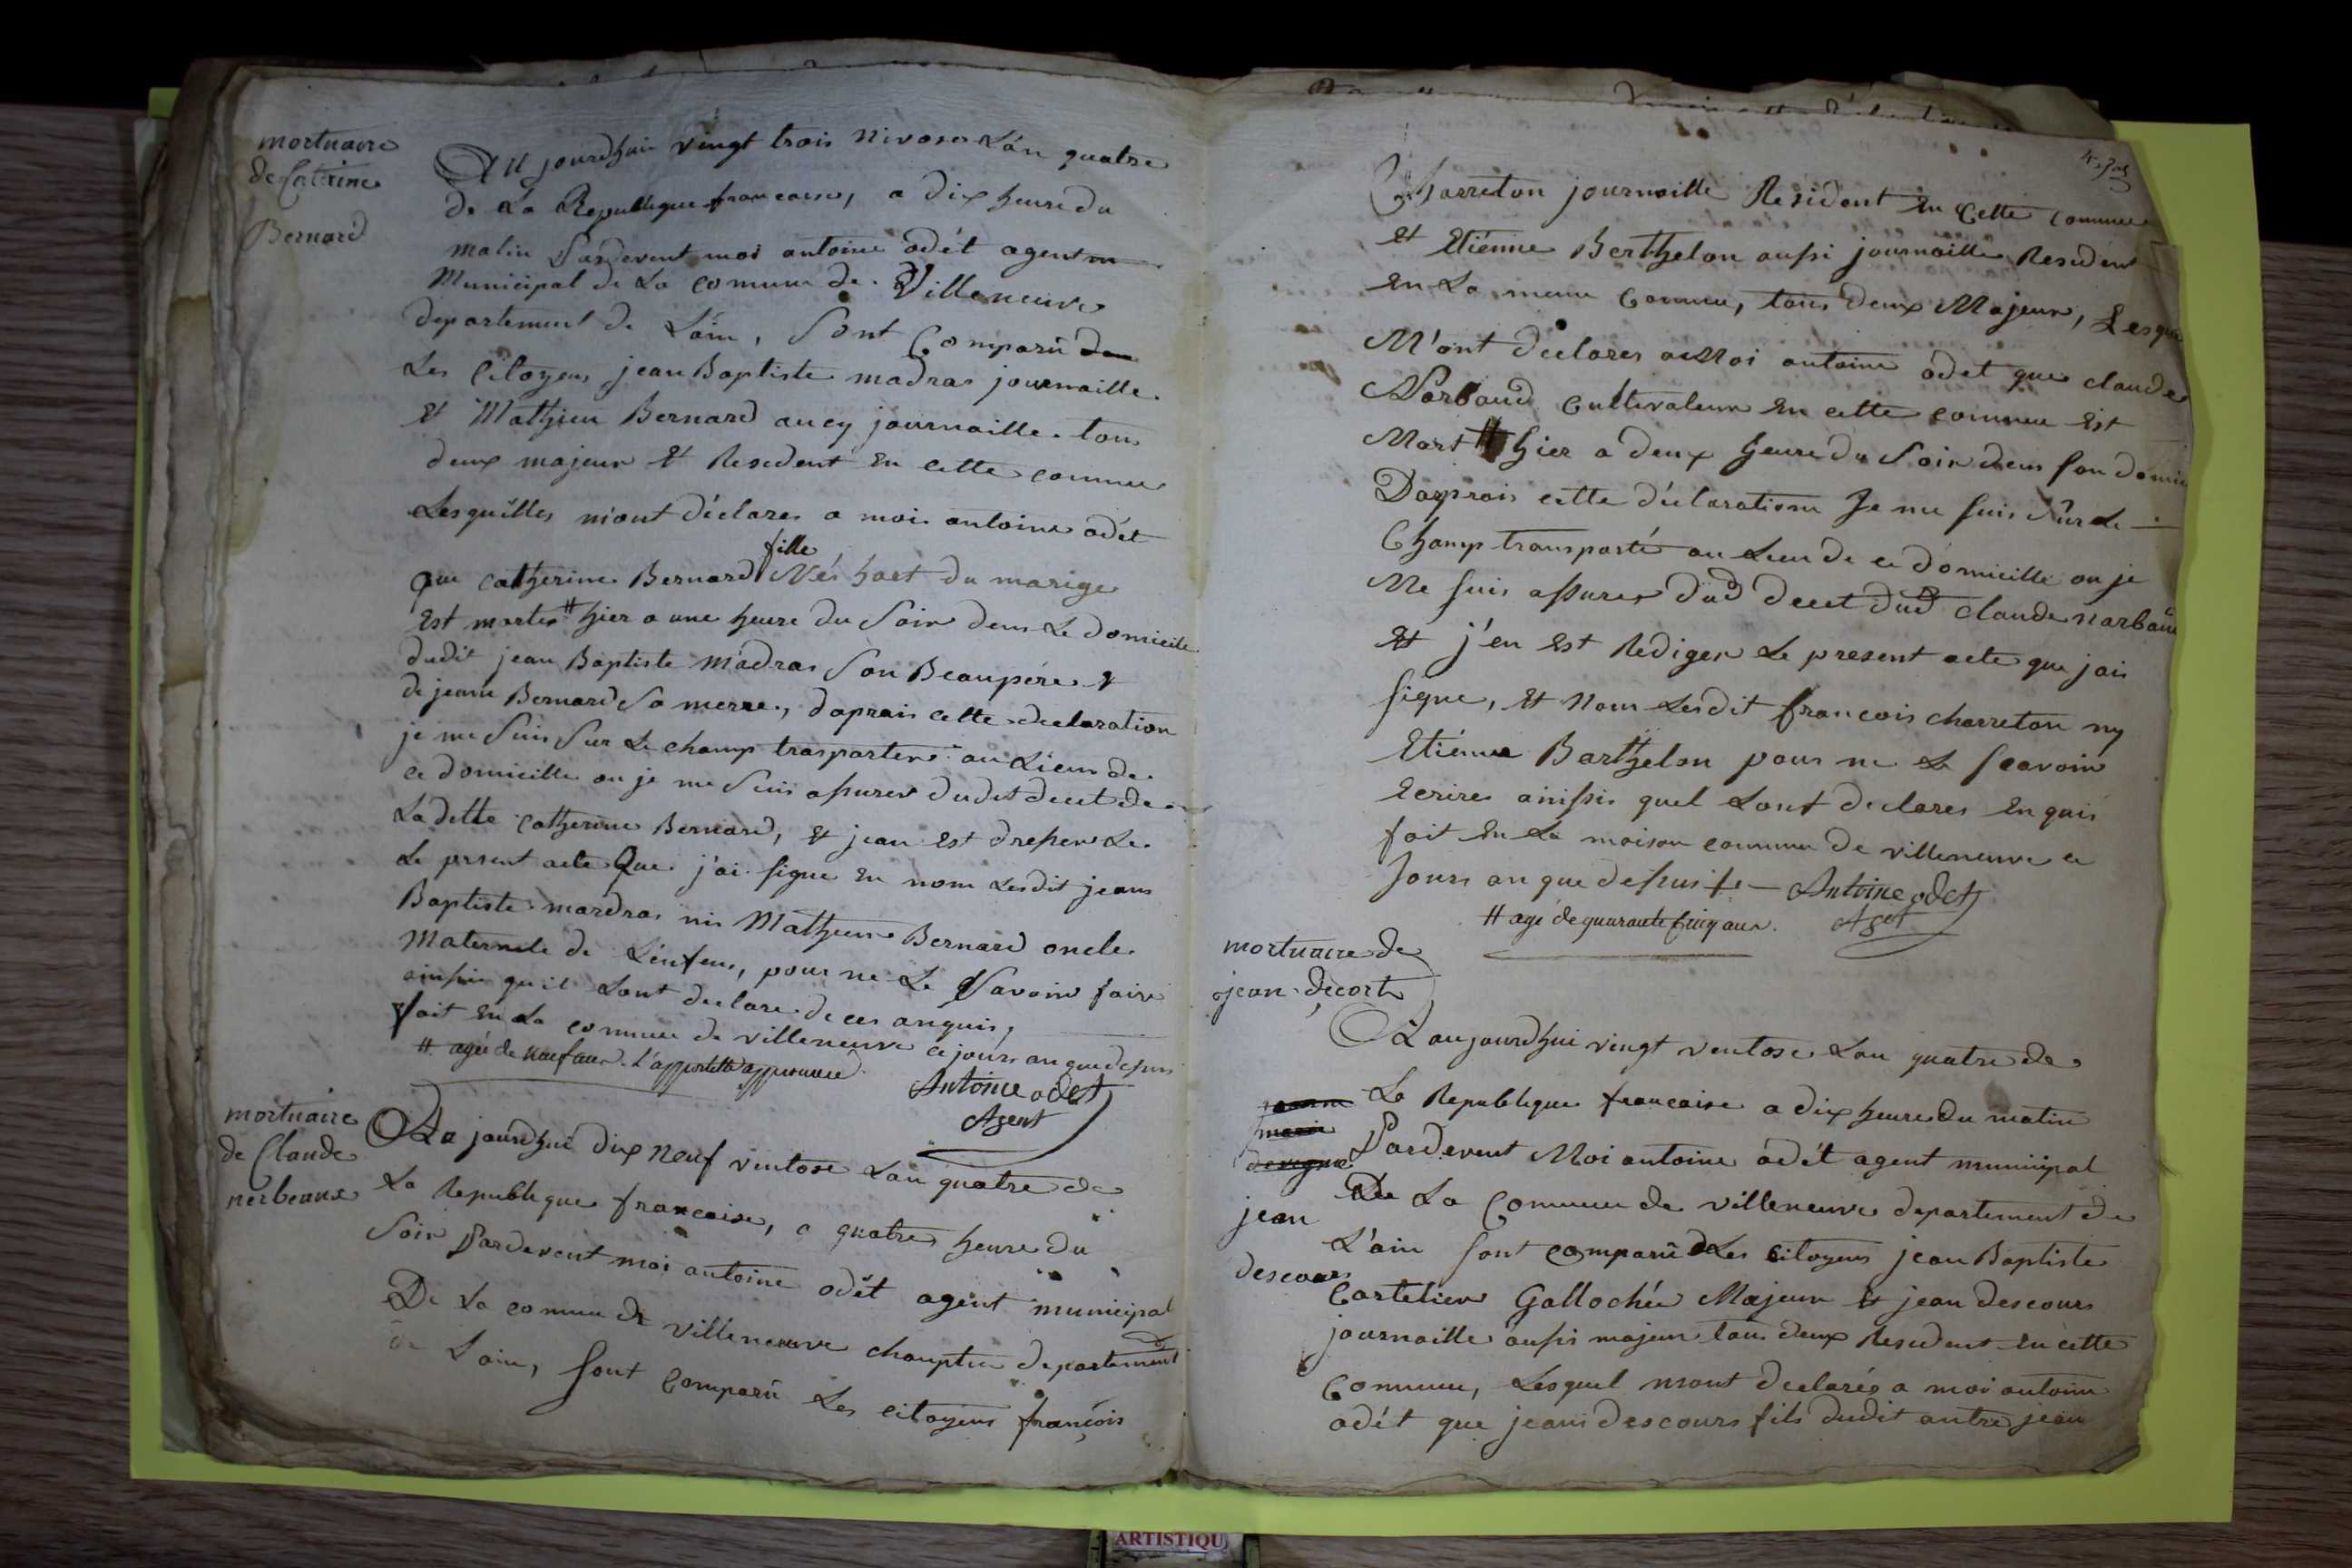 mortuaire
de Catrine
Bernard
Au jourdhui vingt trois nivose L'an quatre
de La Republique francaise, a dix heure du
matin Pardevent moi antoine odét agent
Municipal de La comune de Villeneuve
departement de L'ain, Sont Comparû
Les Citoyens jean Baptiste madras journaille
et Mathieu Bernard aucy journaille tous
deux majeur et Resedent en cette commune
Lesquilles m'ont déclarer a moi antoine odét
que catherine Bernard fille Née hort du marige
Est morte # hier a une heure du Soir dens Le domicile
dudit jean Baptiste madras Son Beaupére et
de jeanne Bernard Sa merre, daprais cette declaration
je me Suis Sur Le champ trasporter au Lieux de
ce domicille ou je me Suis assurer dudit decet de
Ladette Catherine Bernard, et jean est dresser Le
Le prsent acte Que j'ai signe en nom Lesdit jean
Baptiste mardras ni Mathieu Bernard oncle
Maternele de L'enfens, pour ne Le Savoir faire
ainssi quil Lont declare de ces anquis,
fait en La commune de villeneuve ce jours an que dessus
# agée de neuf ans. L'appostille approuvée
Antoine odet
Agent
mortuaire
de Claude
nerbeaux
Aujourdhui dix neuf ventose Lan quatre de
La Republique francaise, a quatre heure du
Soir Pardevent moi antoine odét agent municipal
De La comune de villeneuve champten departement
de Lain, Sont Comparû Les citoyens françois
Charreton journaille Resident en Cette commune
et Etiénne Berthelon aussi journaille Resident
en La meme Commune, tous deux Majeur, Lesque
M'ont declarer a Moi antoine odet que claude
Narbaud Cultivateur en cette commune est
Mort # hier a deux heure du Soir dens son domi
Dapprais cette déclaration Je me suis sûr Le
Champ transporté au Lieu de ce domicille ou je
Me suis assurer dud decet dud Claude narbaud
et j'en est Rediger Le present acte que jai
signe, et Nom Lesdit francois charreton ny
Etiénne Barthelon pour ne Le scavoir
Ecrire ainssis quel Lont declarer en quis
fait en La maison commune de villeneuve ce
Jours an que dessus — Antoine odet
# agé de quarante cinq ans. Aget
mortuaire de
jean decort
Aujourdhui vingt ventose Lan quatre de
La Republique francaise a dix heure du matin
Pardevent Moi antoine odét agent municipal
De La Commune de villeneuve departement de
jean
descours
L'ain sont comparû Les citoyens jean Baptiste
Cartelier Gallochée Majeur et jean descours
journaille aussi majeur tous deux Resedent en cette
Commune, Lesquel mont declarés a moi antoine
odét que jean descours fils dudit autre jean
ARTISTIQU